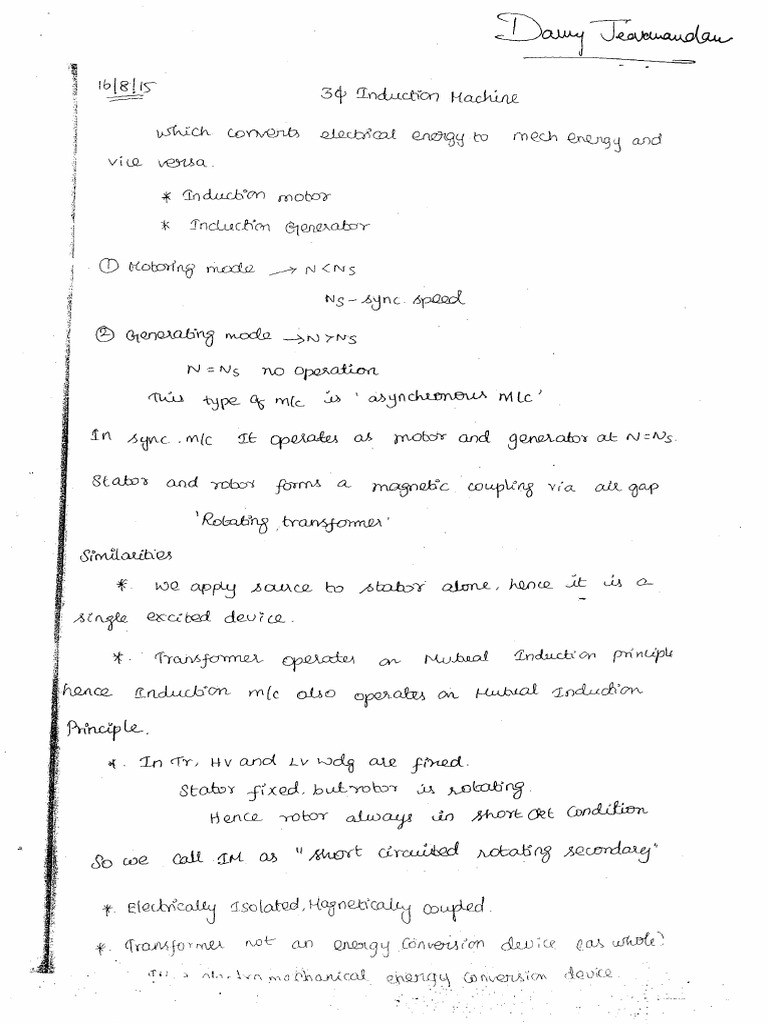 Damy Jeavanandan
16/8/15
3ϕ Induction Machine
which converts electrical energy to mech energy and
vice versa.
* Induction motor
* Induction Generator
① Motoring mode → N<Ns
Ns – sync. speed
② Generating mode → N>Ns
N = Ns no operation
This type of m/c is 'asynchronous M/C'
In sync. m/c It operates as motor and generator at N=Ns.
Stator and rotor forms a magnetic coupling via air gap
'Rotating transformer'
Similarities
*. we apply source to stator alone, hence it is a
single excited device.
*. Transformer operates on Mutual Induction principle
hence Induction m/c also operates on Mutual Induction
Principle.
*. In Tr, HV and LV wdg are fixed.
Stator fixed, but rotor is rotating.
Hence rotor always in short ckt condition
So we call IM as "short circuited rotating secondary"
*. Electrically Isolated, Magnetically coupled.
*. Transformer not an energy conversion device (as whole)
mechanical energy conversion device.